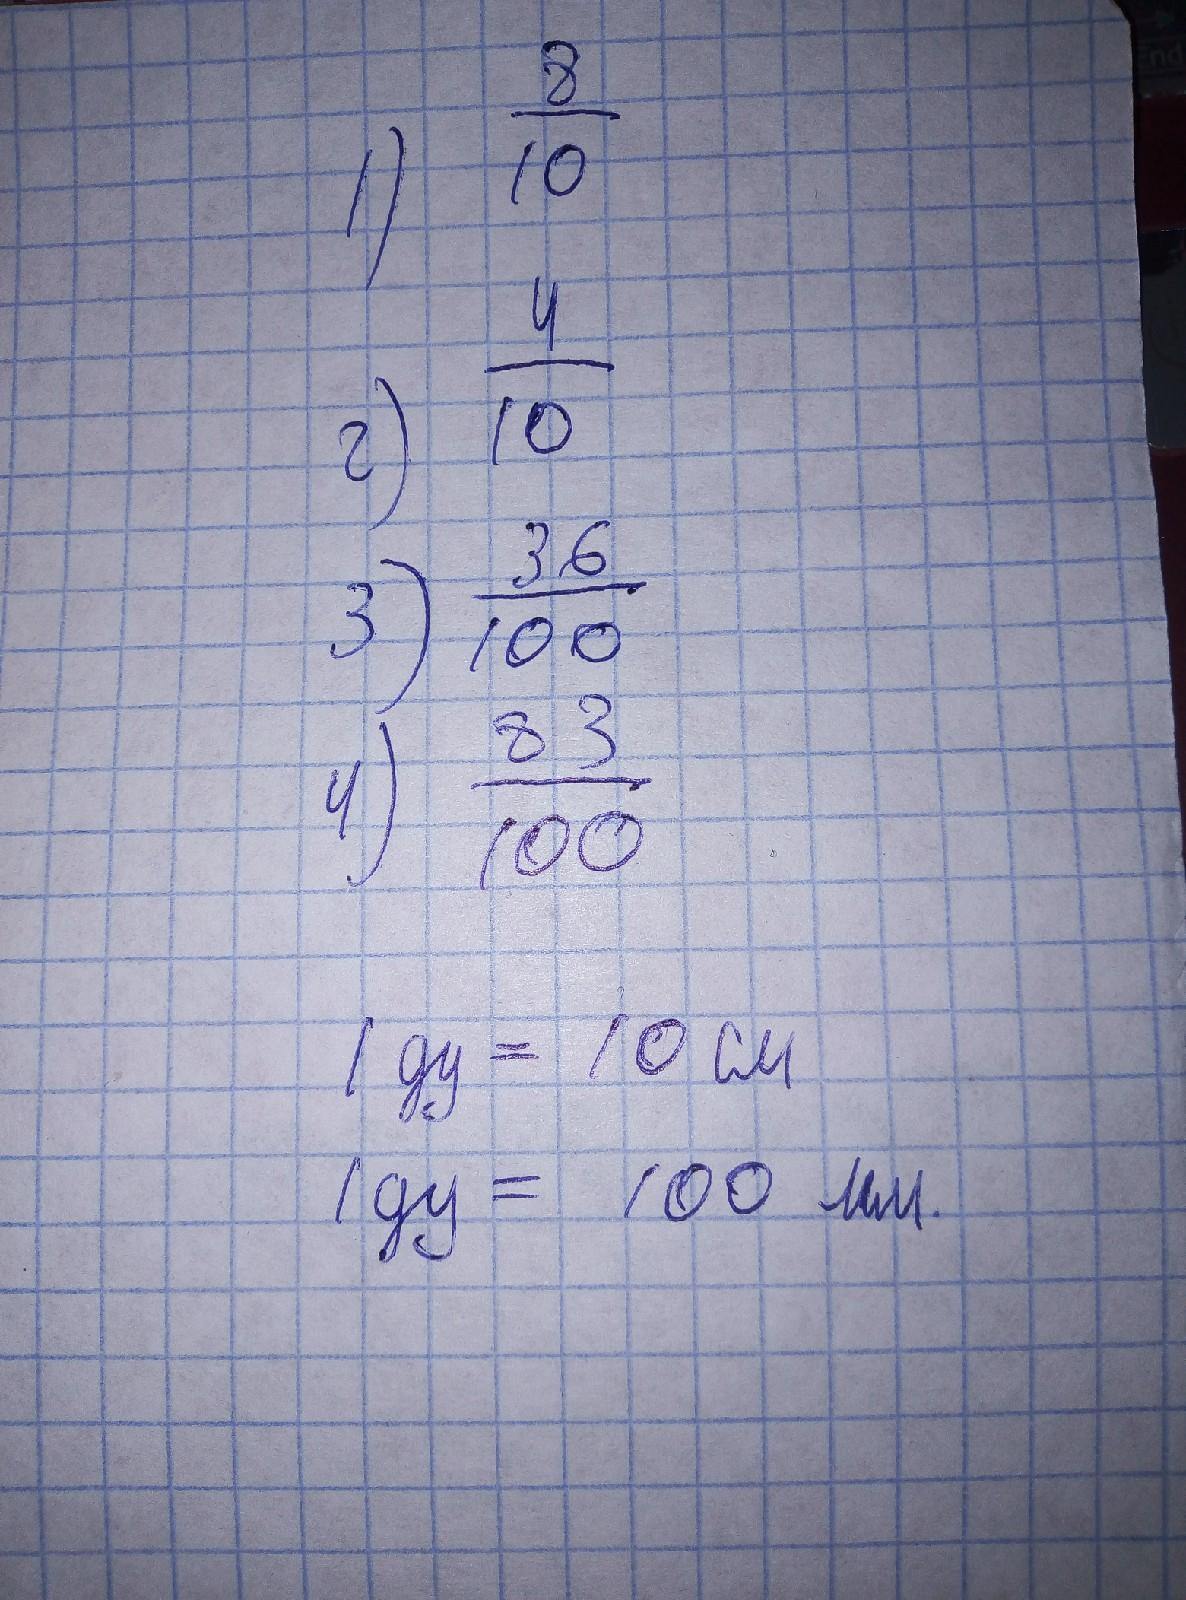 1) 8/10
2) 4/10
3) 36/100
4) 83/100
1 ду = 10 см
1 ду = 100 мм.